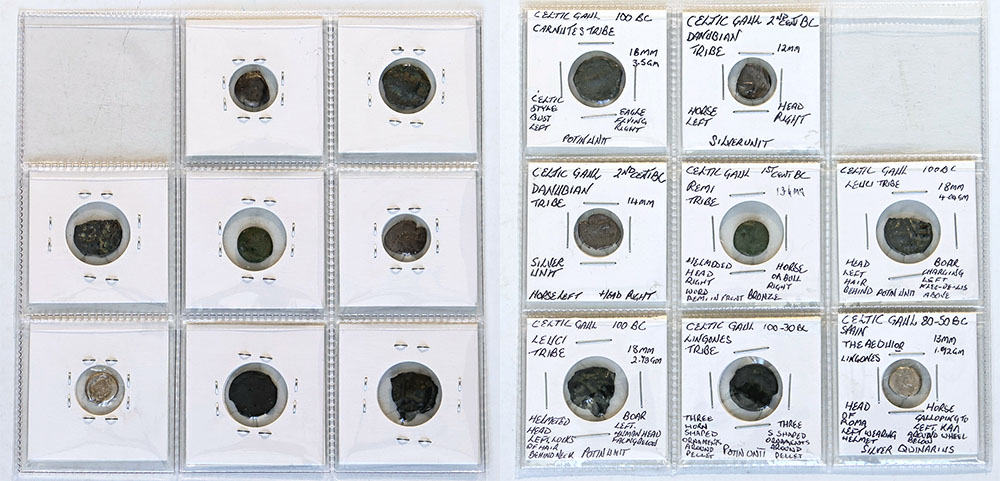 CELTIC GAUL 100 BC
CARNUTES TRIBE
18MM
3.5GM
CELTIC
STYLE
BUST
LEFT
EAGLE
FLYING
RIGHT
POTIN UNIT
CELTIC GAUL 2ND CENT BC
DANUBIAN
TRIBE
12MM
HORSE
LEFT
HEAD
RIGHT
SILVER UNIT
CELTIC GAUL 2ND CENT BC
DANUBIAN
TRIBE
14MM
SILVER
UNIT
HORSE LEFT HEAD RIGHT
CELTIC GAUL 1ST CENT BC
REMI
TRIBE
HELMOSED
HEAD
RIGHT
WORD
REMI IN FRONT BRONZE
HORSE
OR BULL
RIGHT
CELTIC GAUL 100 BC
LEUCI TRIBE
18MM
HEAD
LEFT
HAIR
BEHIND POTIN UNIT
BOAR
CHARGING
LEFT
FLEC-DE-LIS
ABOVE
CELTIC GAUL 100 BC
LEUCI
TRIBE
18MM
2.73GM
HELMETED
HEAD
LEFT, LOCKS
OF HAIR
BEHIND NECK POTIN UNIT
BOAR
LEFT.
HUMAN HEAD
FACING BELOW
CELTIC GAUL 100-30 BC
LINGONES
TRIBE
THREE
HORN
SHAPED
ORNAMENTS
AROUND
PELLET
POTIN UNIT
THREE
S SHAPED
ORNAMENTS
AROUND
PELLET
CELTIC GAUL 80-50 BC
SPAIN
THE AEDUI OR
LINGONES
13MM
1.92GM
HEAD
OF
ROMA
LEFT WEARING
HELMET
HORSE
GALLOPING TO
LEFT, KAA
AROUND WHEEL
BELOW
SILVER QUINARIUS